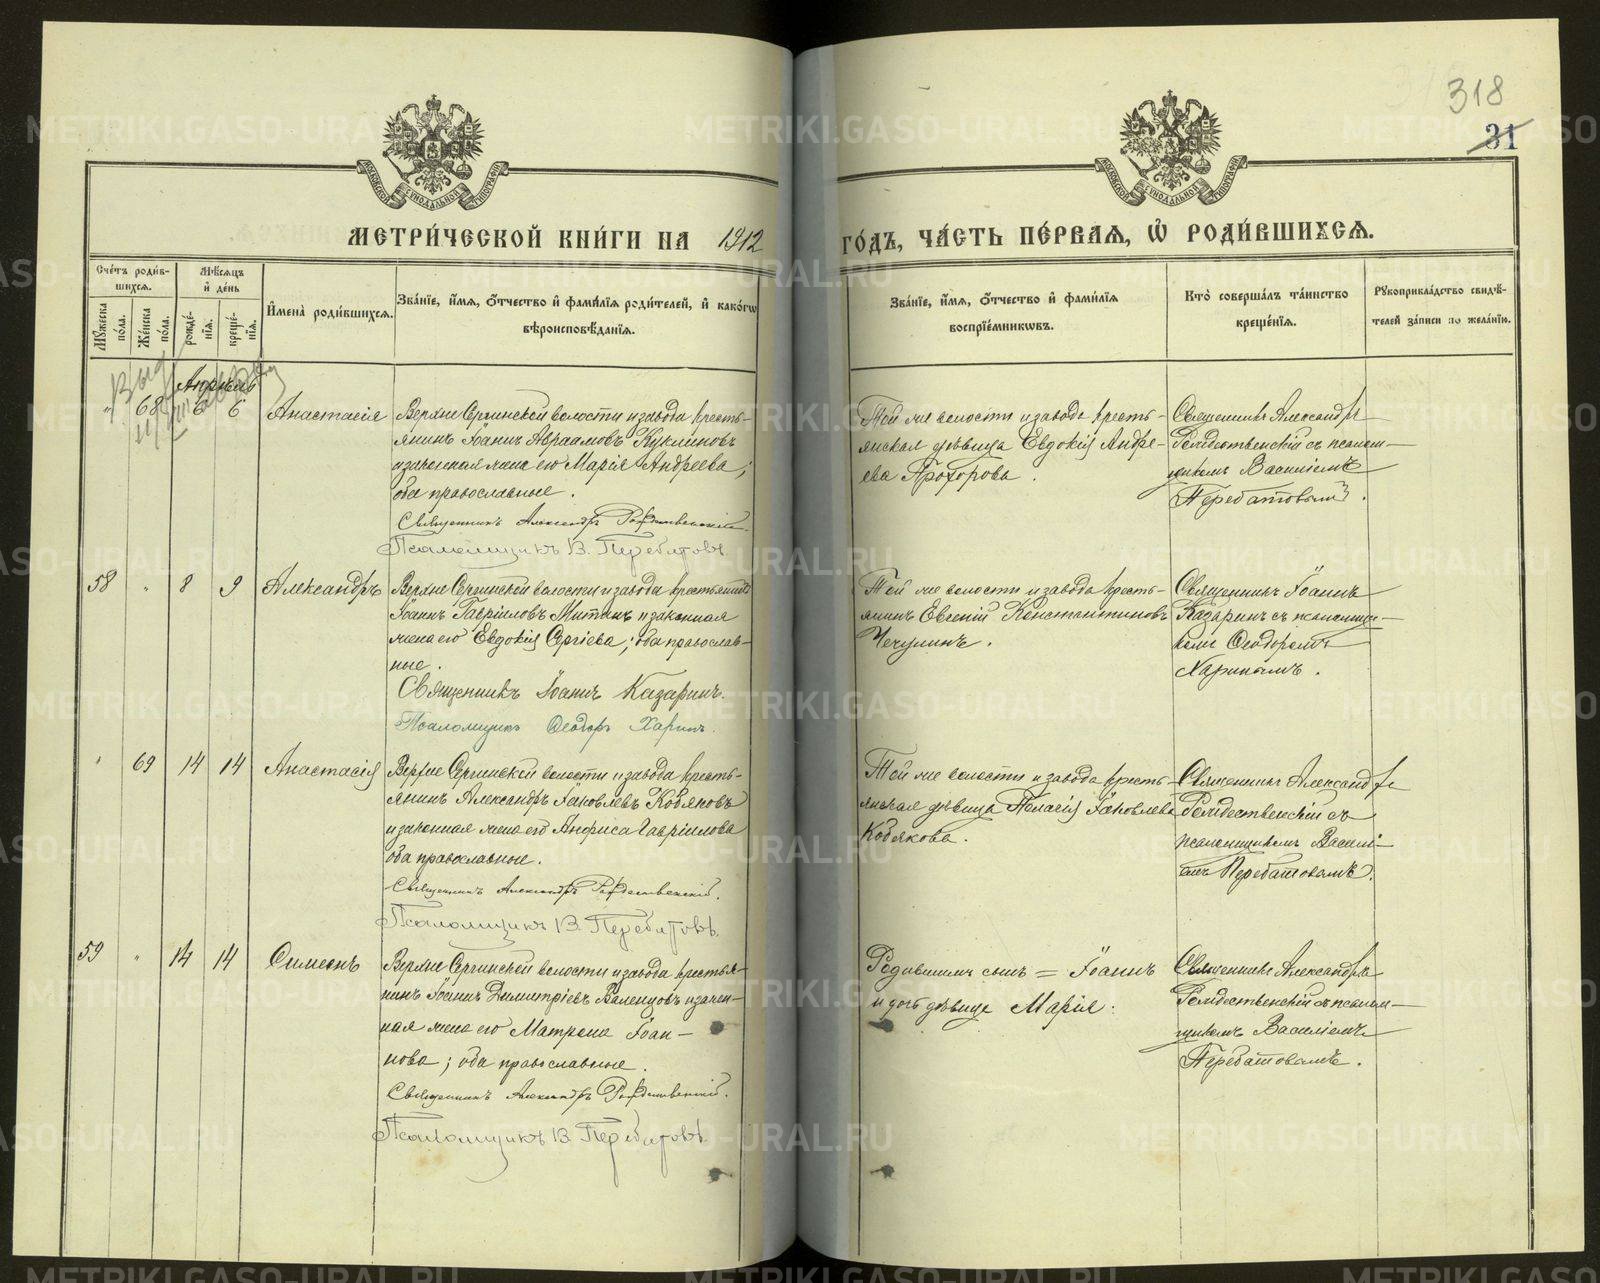 318
31
МЕТРИ́ЧЕСКОЙ КНИ́ГИ НА 1912
ГО́ДЪ, ЧА́СТЬ ПЕ́РВАЯ, Ѡ҆ РОДИ́ВШИХСЯ.
Сче́тъ роди́в-
шихся.
Мѣ́сяцъ
и҆ де́нь
Мꙋ́жеска по́ла.
Же́нска по́ла.
рожде́-
нїѧ.
креще́-
нїѧ.
И҆мена̀ роди́вшихся.
Зва́нїе, и҆́мѧ, ѻ҆́тчество и҆ фами́лїѧ роди́телей, и҆ како́гѡ
вѣроисповѣ́данїѧ.
Зва́нїе, и҆́мѧ, ѻ҆́тчество и҆ фами́лїѧ
воспрїе́мникѡвъ.
Кто̀ соверша́лъ та́инство
креще́нїѧ.
Рꙋкоприкла́дство свидѣ́-
телей за́писи по жела́нїю.
Апрѣль
" 68 6 6 Анастасія
Верхне Сергинской волости и завода кресть-
янинъ Іоаннъ Авраамовъ Куклиновъ
и законная жена его Марія Андреева;
оба православные.
Священникъ Александръ Рождественскій
Псаломщикъ В. Перебатовъ
Той же волости и завода кресть-
янская дѣвица Евдокія Андре-
ева Прохорова.
Священникъ Александръ
Рождественскій съ псалом-
щикомъ Василіемъ
Перебатовымъ.
58 " 8 9 Александръ
Верхне Сергинской волости и завода крестьянинъ
Іоаннъ Гавріиловъ Митинъ и законная
жена его Евдокія Сергіева; оба православ-
ные.
Священникъ Іоаннъ Казаринъ.
Псаломщикъ Ѳеодоръ Харинъ.
Той же волости и завода кресть-
янинъ Евгеній Константиновъ
Чечулинъ.
Священникъ Іоаннъ
Казаринъ съ псаломщи-
комъ Ѳеодоромъ
Харинымъ.
" 69 14 14 Анастасія
Верхне Сергинской волости и завода кресть-
янинъ Александръ Іаковлевъ Кобяковъ
и законная жена его Анфиса Гавріилова
оба православные.
Священникъ Александръ Рождественскій.
Псаломщикъ В. Перебатовъ.
Той же волости и завода кресть-
янская дѣвица Пелагія Іаковлева
Кобякова.
Священникъ Александръ
Рождественскій съ
псаломщикомъ Василі-
емъ Перебатовымъ.
59 " 14 14 Симеонъ
Верхне Сергинской волости и завода крестья-
нинъ Іоаннъ Димитріевъ Валенцовъ и закон-
ная жена его Матрона Іоан-
нова; оба православные.
Священникъ Александръ Рождественскій.
Псаломщикъ В. Перебатовъ
Іоаннъ
дѣвица Марія.
Священникъ Александръ
Рождественскій съ псалом-
щикомъ Василіемъ
Перебатовымъ.
METRIKI.GASO-URAL.RU